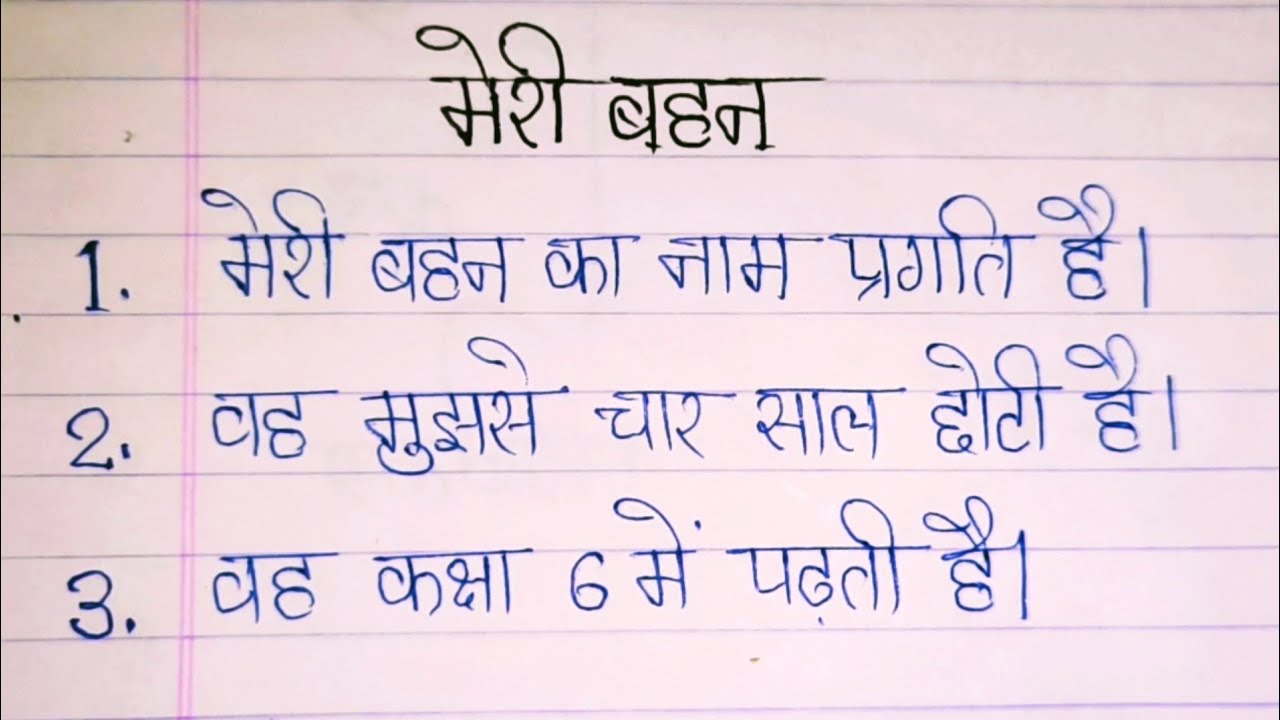 मेरी बहन
1. मेरी बहन का नाम प्रगति है।
2. वह मुझसे चार साल छोटी है।
3. वह कक्षा 6 में पढ़ती है।